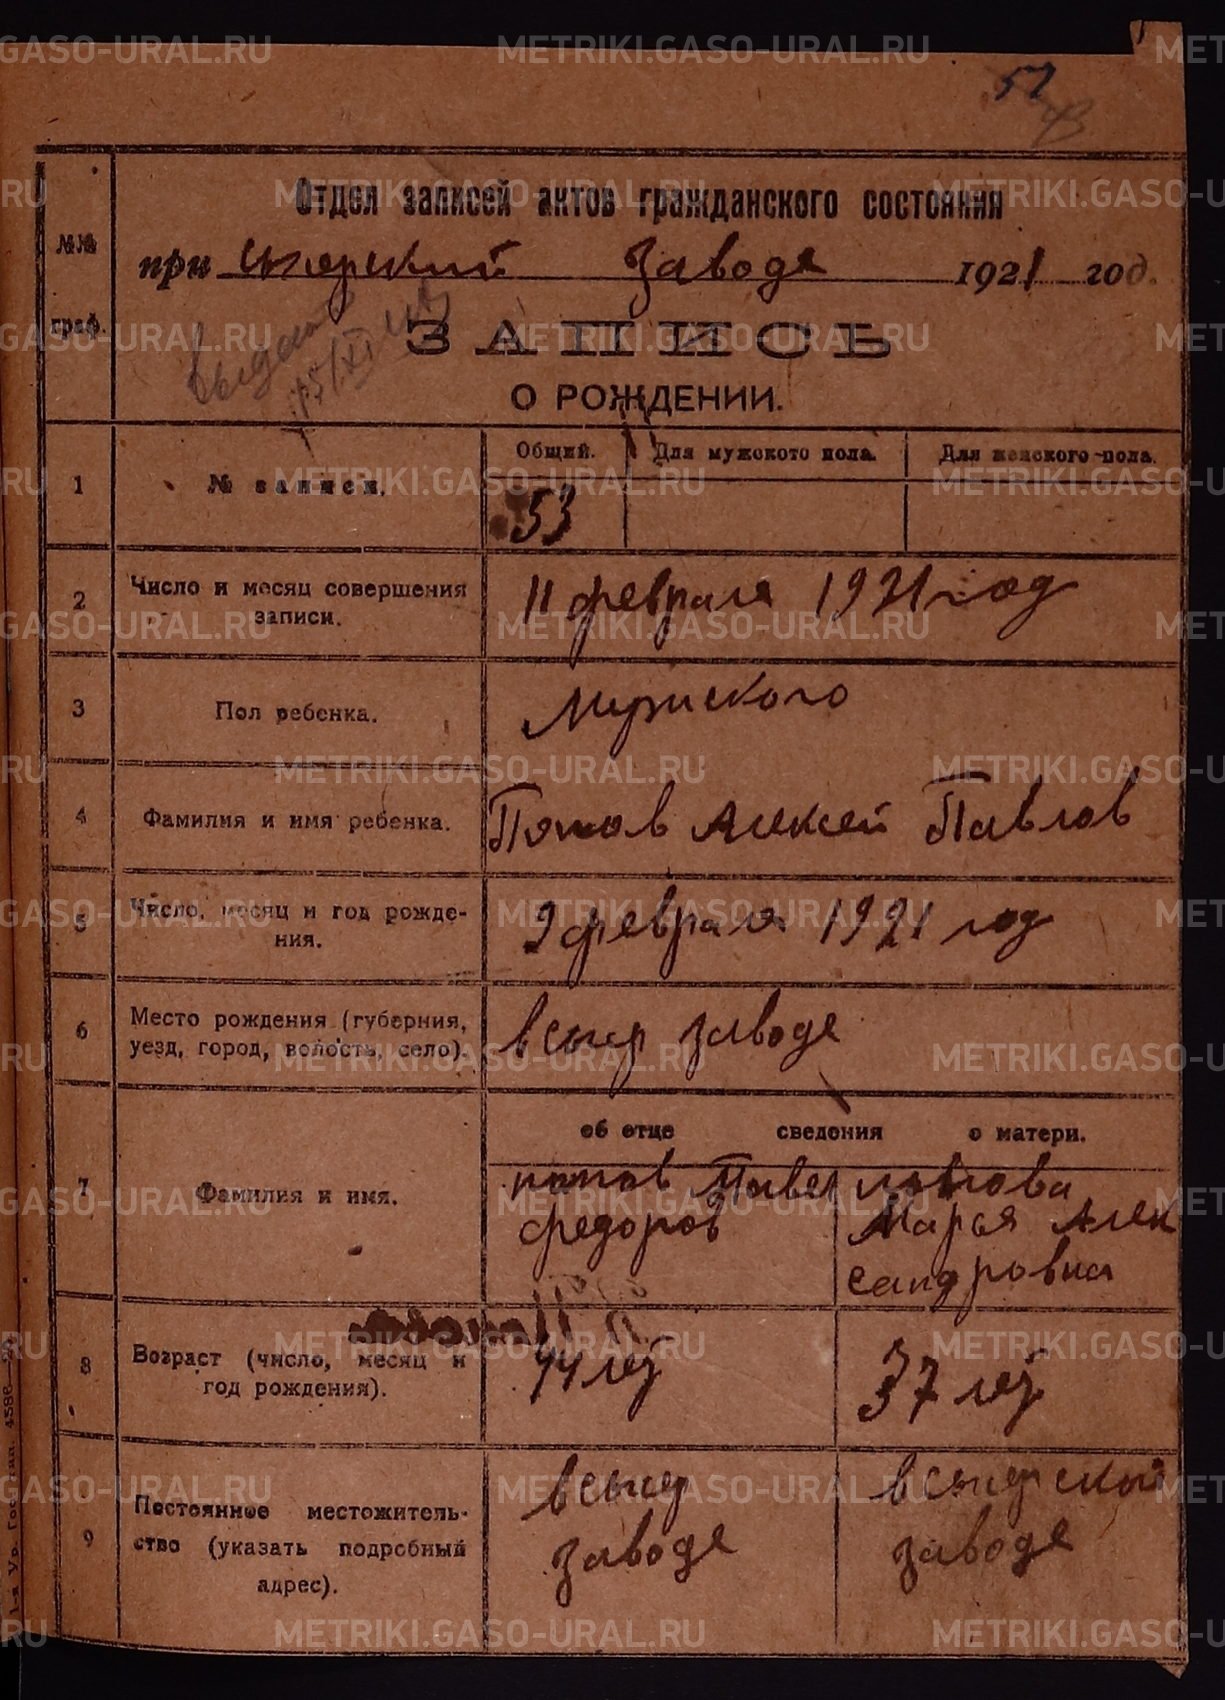 57
43
Отдел записей актов гражданского состояния
при сысерский заводе 1921 год.
№№ граф.
ЗАПИСЬ
О РОЖДЕНИИ.
Общий. Для мужского пола. Для женского пола.
1 № записи. 53
2 Число и месяц совершения записи. 11 февраля 1921 год
3 Пол ребенка. Мужского
4 Фамилия и имя ребенка. Попов Алексей Павлов
5 Число, месяц и год рождения. 9 февраля 1921 год
6 Место рождения (губерния, уезд, город, волость, село). в сысер заводе
об отце сведения о матери.
7 Фамилия и имя. попов Павел федоров
попова Марья Алек сандровна
8 Возраст (число, месяц и год рождения). 44 лет 37 лет
9 Постоянное местожительство (указать подробный адрес). в сысер заводе
в сысерском заводе
METRIKI.GASO-URAL.RU